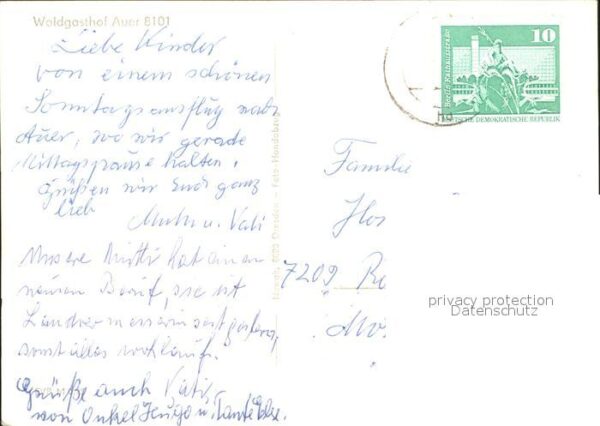 Waldgasthof Auer 8101
Liebe Kinder
von einem schönen
Sonntagsausflug nach
Auer, wo wir gerade
Mittagspause halten,
Grüßen wir Euch ganz
lieb
Mutti u. Vati
Unsere Mutti hat einen
neuen Beruf, sie ist
Landvermesserin seit gestern,
sonst alles wohlauf.
Grüße auch Vati,
von Onkel Heinz u. Tante Else.
Dresden - Foto Handobern
10
DEUTSCHE DEMOKRATISCHE REPUBLIK
Familie
7209
privacy protection
Datenschutz